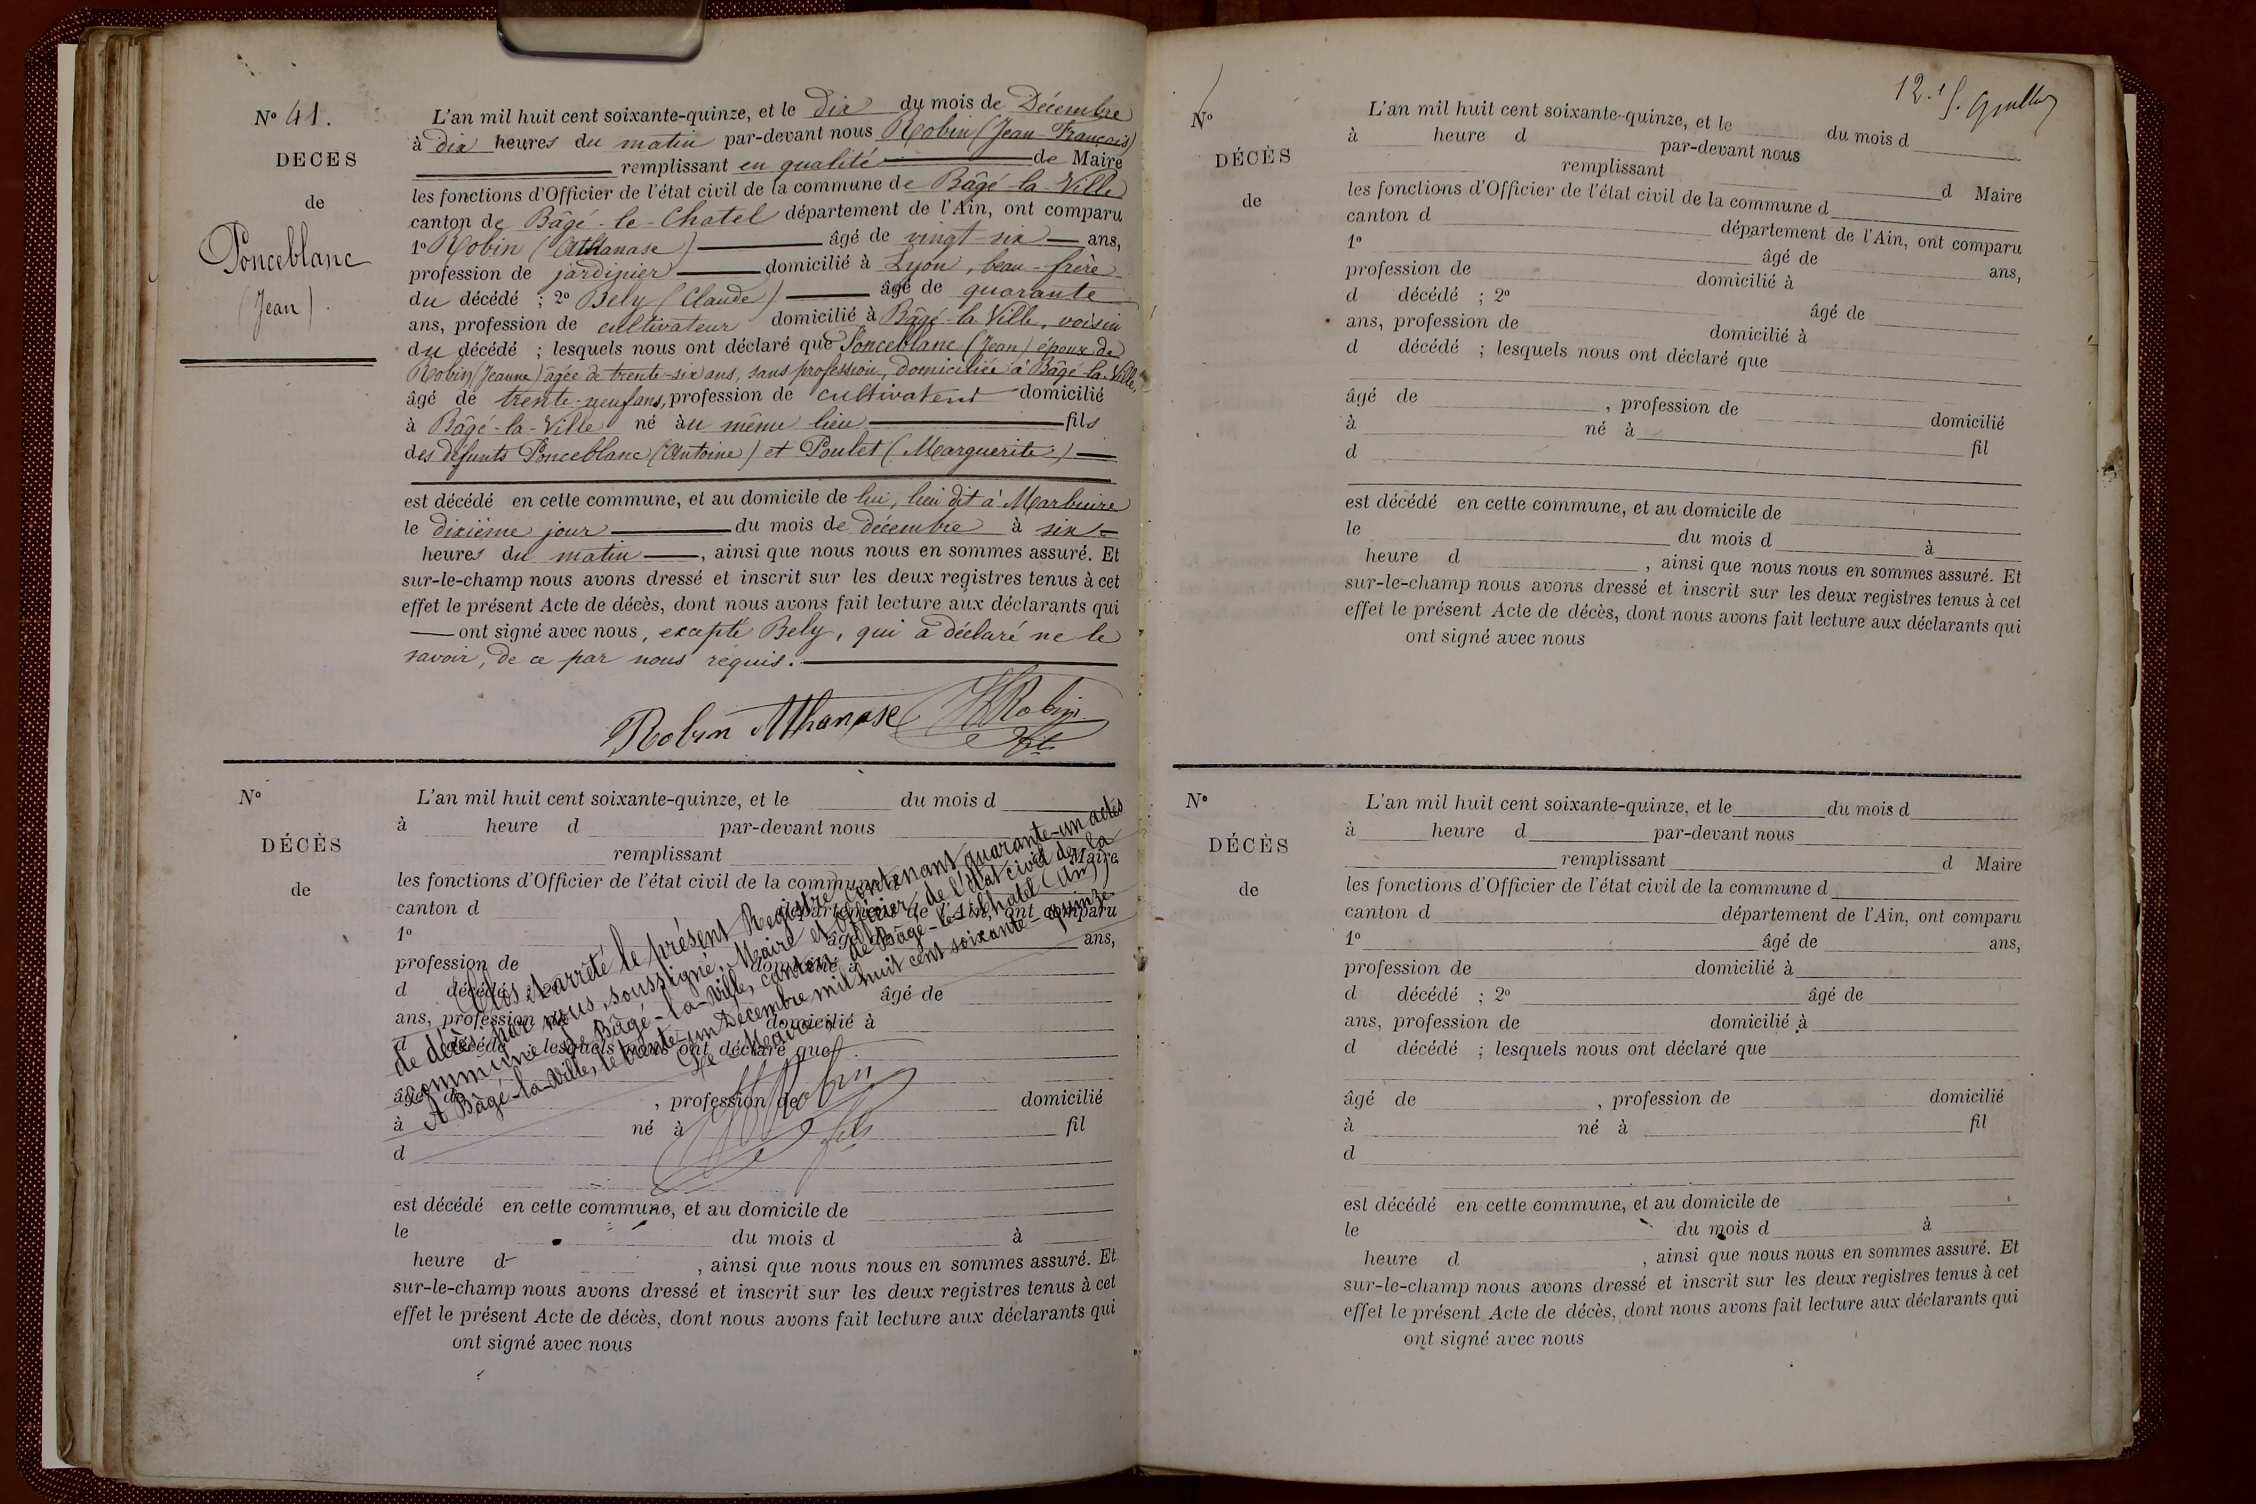 N° 41.
DÉCÈS
de
Ponceblanc
(Jean).
L'an mil huit cent soixante-quinze, et le dix du mois de Décembre
à dix heures du matin par-devant nous Robin (Jean-François)
remplissant en qualité de Maire
les fonctions d'Officier de l'état civil de la commune de Bâgé-la-Ville
canton de Bâgé-le-Chatel département de l'Ain, ont comparu
1° Robin (Athanase) âgé de vingt-six ans,
profession de jardinier domicilié à Lyon, beau-frère
du décédé ; 2° Bely (Claude) âgé de quarante
ans, profession de cultivateur domicilié à Bâgé-la-Ville, voisin
du décédé ; lesquels nous ont déclaré que Ponceblanc (Jean) époux de
Robin (Jeanne) âgée de trente-six ans, sans profession, domiciliée à Bâgé-la-Ville,
âgé de trente-neuf ans, profession de cultivateur domicilié
à Bâgé-la-Ville né au même lieu fils
des défunts Ponceblanc (Antoine) et Poulet (Marguerite)
est décédé en cette commune, et au domicile de lui, lieu dit à Marbuire
le dixième jour du mois de décembre à six
heures du matin, ainsi que nous nous en sommes assuré. Et
sur-le-champ nous avons dressé et inscrit sur les deux registres tenus à cet
effet le présent Acte de décès, dont nous avons fait lecture aux déclarants qui
ont signé avec nous, excepté Bely, qui a déclaré ne le
savoir, de ce par nous requis.
Robin Athanase Robin
fils
N°
DÉCÈS
de
L'an mil huit cent soixante-quinze, et le du mois d
à heure d par-devant nous
remplissant d Maire
les fonctions d'Officier de l'état civil de la commune d
canton d département de l'Ain, ont comparu
1° âgé de ans,
profession de domicilié à
d décédé ; 2° âgé de
ans, profession de domicilié à
d décédé ; lesquels nous ont déclaré que
âgé de , profession de domicilié
à né à fil
d
est décédé en cette commune, et au domicile de
le du mois d à
heure d , ainsi que nous nous en sommes assuré. Et
sur-le-champ nous avons dressé et inscrit sur les deux registres tenus à cet
effet le présent Acte de décès, dont nous avons fait lecture aux déclarants qui
ont signé avec nous
Clos et arrêté le présent Registre contenant quarante-un actes
de décès, par nous, soussigné, Maire et Officier de l'état civil de la
commune de Bâgé-la-Ville, canton de Bâgé-le-Chatel (Ain).
A Bâgé-la-Ville, le trente-un Décembre mil huit cent soixante-quinze
Le Maire,
Robin
fils
12.
N°
DÉCÈS
de
L'an mil huit cent soixante-quinze, et le du mois d
à heure d par-devant nous
remplissant d Maire
les fonctions d'Officier de l'état civil de la commune d
canton d département de l'Ain, ont comparu
1° âgé de ans,
profession de domicilié à
d décédé ; 2° âgé de
ans, profession de domicilié à
d décédé ; lesquels nous ont déclaré que
âgé de , profession de domicilié
à né à fil
d
est décédé en cette commune, et au domicile de
le du mois d à
heure d , ainsi que nous nous en sommes assuré. Et
sur-le-champ nous avons dressé et inscrit sur les deux registres tenus à cet
effet le présent Acte de décès, dont nous avons fait lecture aux déclarants qui
ont signé avec nous
N°
DÉCÈS
de
L'an mil huit cent soixante-quinze, et le du mois d
à heure d par-devant nous
remplissant d Maire
les fonctions d'Officier de l'état civil de la commune d
canton d département de l'Ain, ont comparu
1° âgé de ans,
profession de domicilié à
d décédé ; 2° âgé de
ans, profession de domicilié à
d décédé ; lesquels nous ont déclaré que
âgé de , profession de domicilié
à né à fil
d
est décédé en cette commune, et au domicile de
le du mois d à
heure d , ainsi que nous nous en sommes assuré. Et
sur-le-champ nous avons dressé et inscrit sur les deux registres tenus à cet
effet le présent Acte de décès, dont nous avons fait lecture aux déclarants qui
ont signé avec nous